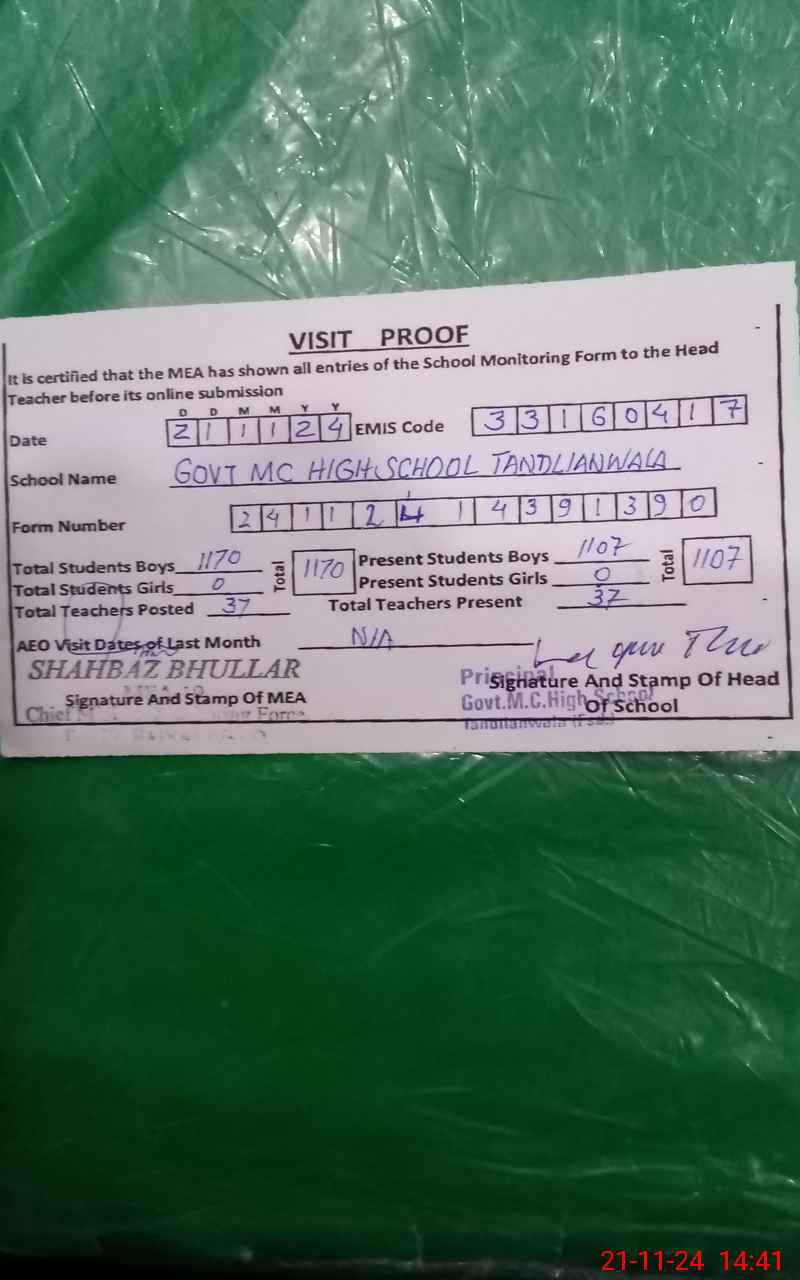 VISIT PROOF
It is certified that the MEA has shown all entries of the School Monitoring Form to the Head
Teacher before its online submission
D D M M Y Y
Date 2 1 1 1 2 4 EMIS Code 3 3 1 6 0 4 1 7
School Name GOVT MC HIGH SCHOOL TANDLIANWALA
Form Number 2 4 1 1 2 4 1 4 3 9 1 3 9 0
Total Students Boys 1170 Total 1170 Present Students Boys 1107 Total 1107
Total Students Girls 0 Present Students Girls 0
Total Teachers Posted 37 Total Teachers Present 37
AEO Visit Dates of Last Month N/A
SHAHBAZ BHULLAR
Principal
Signature And Stamp Of MEA
Signature And Stamp Of Head
Of School
Chief
Govt.M.C.High School
Tandlianwala (Fsd.)
21-11-24 14:41